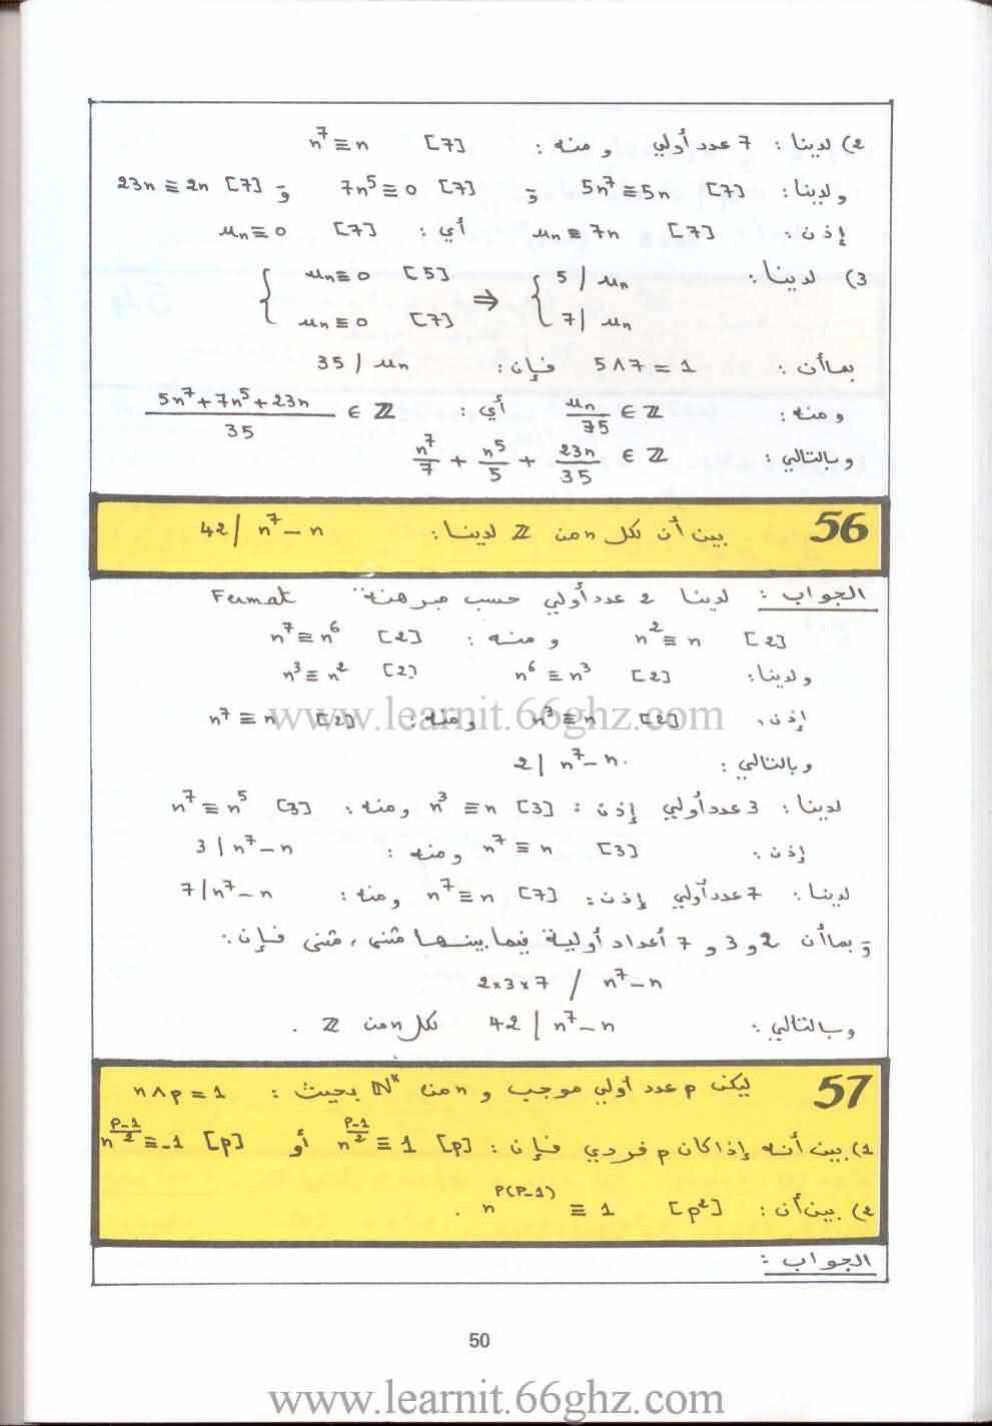 2) لدينا : 7 عدد أولي ومنه : n⁷ ≡ n [7]
ولدينا : 5n⁷ ≡ 5n [7] و 7n⁵ ≡ 0 [7] و 23n ≡ 2n [7]
إذن : uₙ ≡ 7n [7] أي : uₙ ≡ 0 [7]
3) لدينا : { 5 / uₙ ⇒ { uₙ ≡ 0 [5]
7 / uₙ uₙ ≡ 0 [7]
بما أن : 5 ∧ 7 = 1 فإن : 35 / uₙ
ومنه : uₙ/35 ∈ ℤ أي : (5n⁷ + 7n⁵ + 23n)/35 ∈ ℤ
وبالتالي : n⁷/7 + n⁵/5 + 23n/35 ∈ ℤ
56 بين أن لكل n من ℤ لدينا : 42 / n⁷ - n
الجواب : لدينا 2 عدد أولي حسب مبرهنة Fermat
n² ≡ n [2] ومنه : n⁷ ≡ n⁶ [2]
ولدينا : n⁶ ≡ n³ [2] n³ ≡ n² [2]
إذن : n³ ≡ n [2] ومنه : n⁷ ≡ n [2]
www.learnit.66ghz.com
وبالتالي : 2 | n⁷ - n.
لدينا : 3 عدد أولي إذن : n³ ≡ n [3] ومنه : n⁷ ≡ n⁵ [3]
إذن : n⁷ ≡ n [3] ومنه : 3 | n⁷ - n
لدينا : 7 عدد أولي إذن : n⁷ ≡ n [7] ومنه : 7 | n⁷ - n
و بما أن 2 و 3 و 7 أعداد أولية فيما بينها مثنى ، مثنى فإن :
2×3×7 / n⁷ - n
وبالتالي : 42 | n⁷ - n لكل n من ℤ .
57 ليكن p عدد أولي موجب و n من ℕ* بحيث : n ∧ p = 1
1) بين أنه إذا كان p فردي فإن : n^((p-1)/2) ≡ 1 [p] أو n^((p-1)/2) ≡ -1 [p]
2) بين أن : n^(p(p-1)) ≡ 1 [p²] .
الجواب :
50
www.learnit.66ghz.com